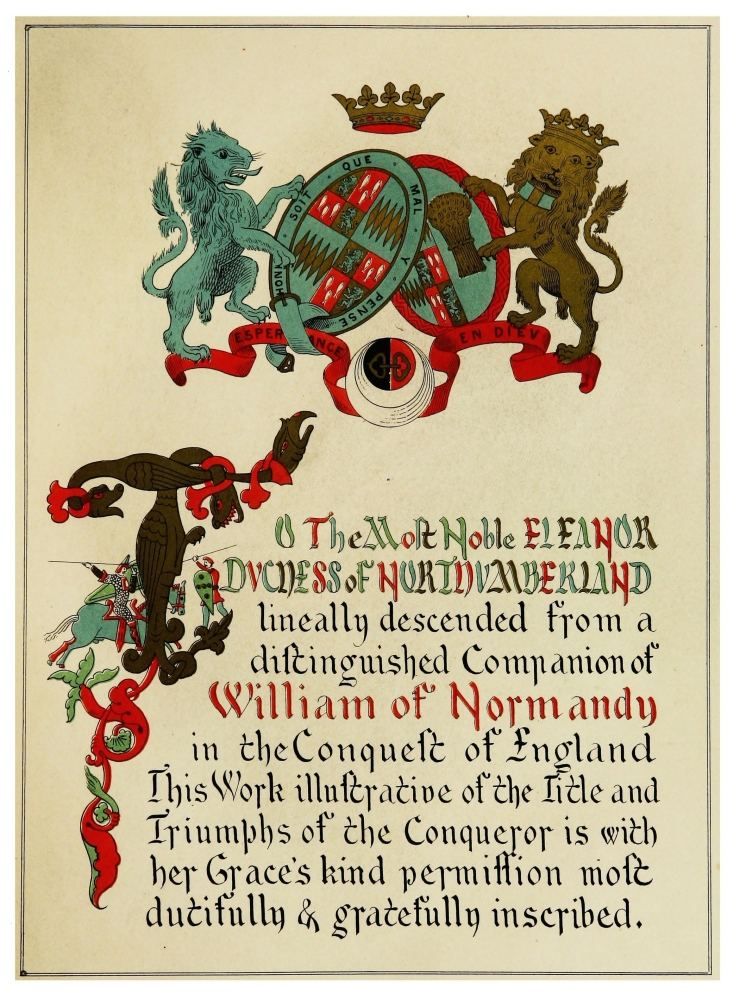 HONY · SOIT · QUE · MAL · Y · PENSE
ESPERANCE EN DIEV
TO The Moſt Noble ELEANOR
DVCHESS of NORTHVMBERLAND
lineally descended from a
diſtinguished Companion of
William of Normandy
in the Conqueſt of England
This Work illuſtrative of the Title and
Triumphs of the Conqueror is with
her Grace's kind permiſſion moſt
dutifully & gratefully inscribed.